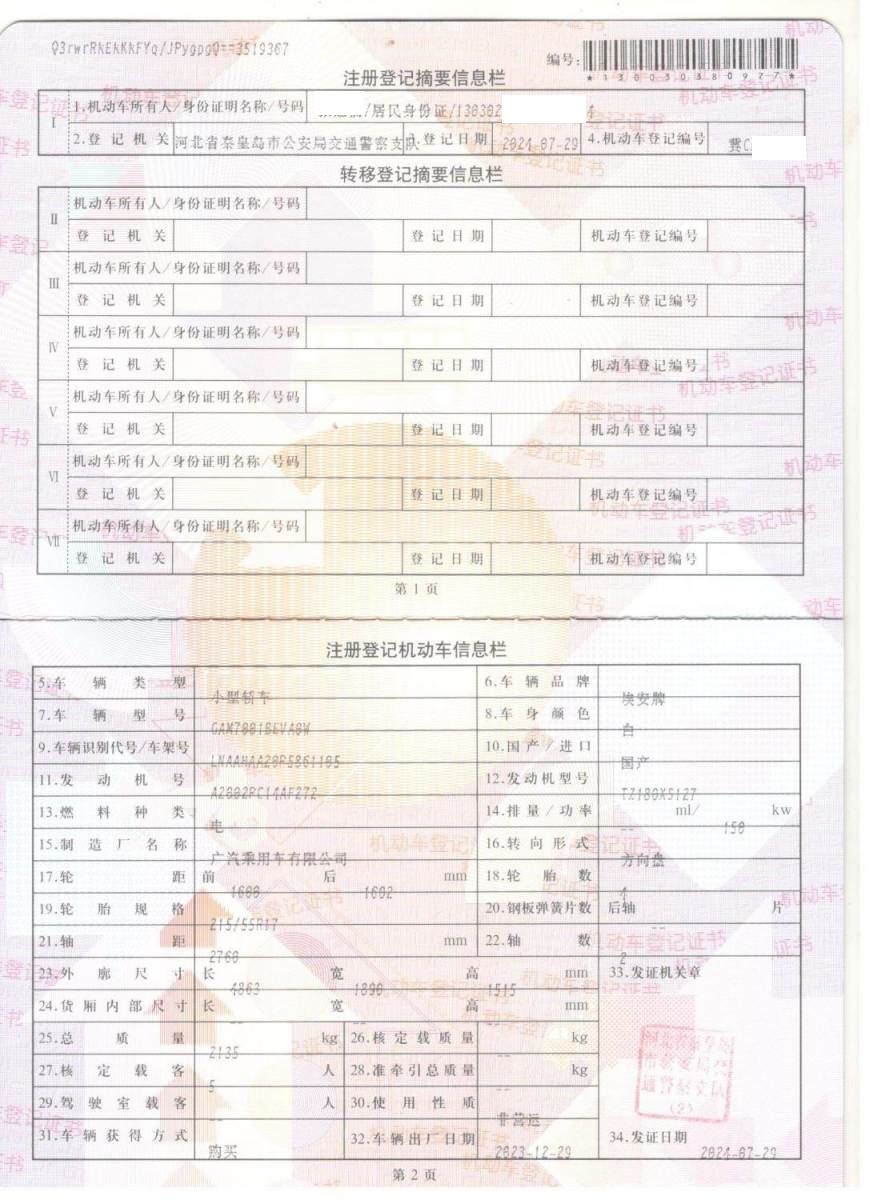 编号:
*130030380977*
注册登记摘要信息栏
I 1.机动车所有人/身份证明名称/号码 /居民身份证/130302
2.登记机关 河北省秦皇岛市公安局交通警察支队 3.登记日期 2024-07-29 4.机动车登记编号 冀C
转移登记摘要信息栏
II 机动车所有人/身份证明名称/号码
登记机关 登记日期 机动车登记编号
III 机动车所有人/身份证明名称/号码
登记机关 登记日期 机动车登记编号
IV 机动车所有人/身份证明名称/号码
登记机关 登记日期 机动车登记编号
V 机动车所有人/身份证明名称/号码
登记机关 登记日期 机动车登记编号
VI 机动车所有人/身份证明名称/号码
登记机关 登记日期 机动车登记编号
VII 机动车所有人/身份证明名称/号码
登记机关 登记日期 机动车登记编号
第1页
注册登记机动车信息栏
5.车辆类型 小型轿车 6.车辆品牌 埃安牌
7.车辆型号 8.车身颜色 白
9.车辆识别代号/车架号 10.国产/进口 国产
11.发动机号 12.发动机型号
13.燃料种类 电 14.排量/功率 -- ml/ 150 kw
15.制造厂名称 广汽乘用车有限公司 16.转向形式 方向盘
17.轮距 前 1600 后 1602 mm 18.轮胎数 4
19.轮胎规格 215/55R17 20.钢板弹簧片数 后轴 -- 片
21.轴距 2760 mm 22.轴数 2
23.外廓尺寸 长 4863 宽 1890 高 1515 mm 33.发证机关章
24.货厢内部尺寸 长 -- 宽 -- 高 -- mm
25.总质量 2135 kg 26.核定载质量 -- kg
27.核定载客 5 人 28.准牵引总质量 -- kg
29.驾驶室载客 -- 人 30.使用性质 非营运
31.车辆获得方式 购买 32.车辆出厂日期 2023-12-29 34.发证日期 2024-07-29
第2页